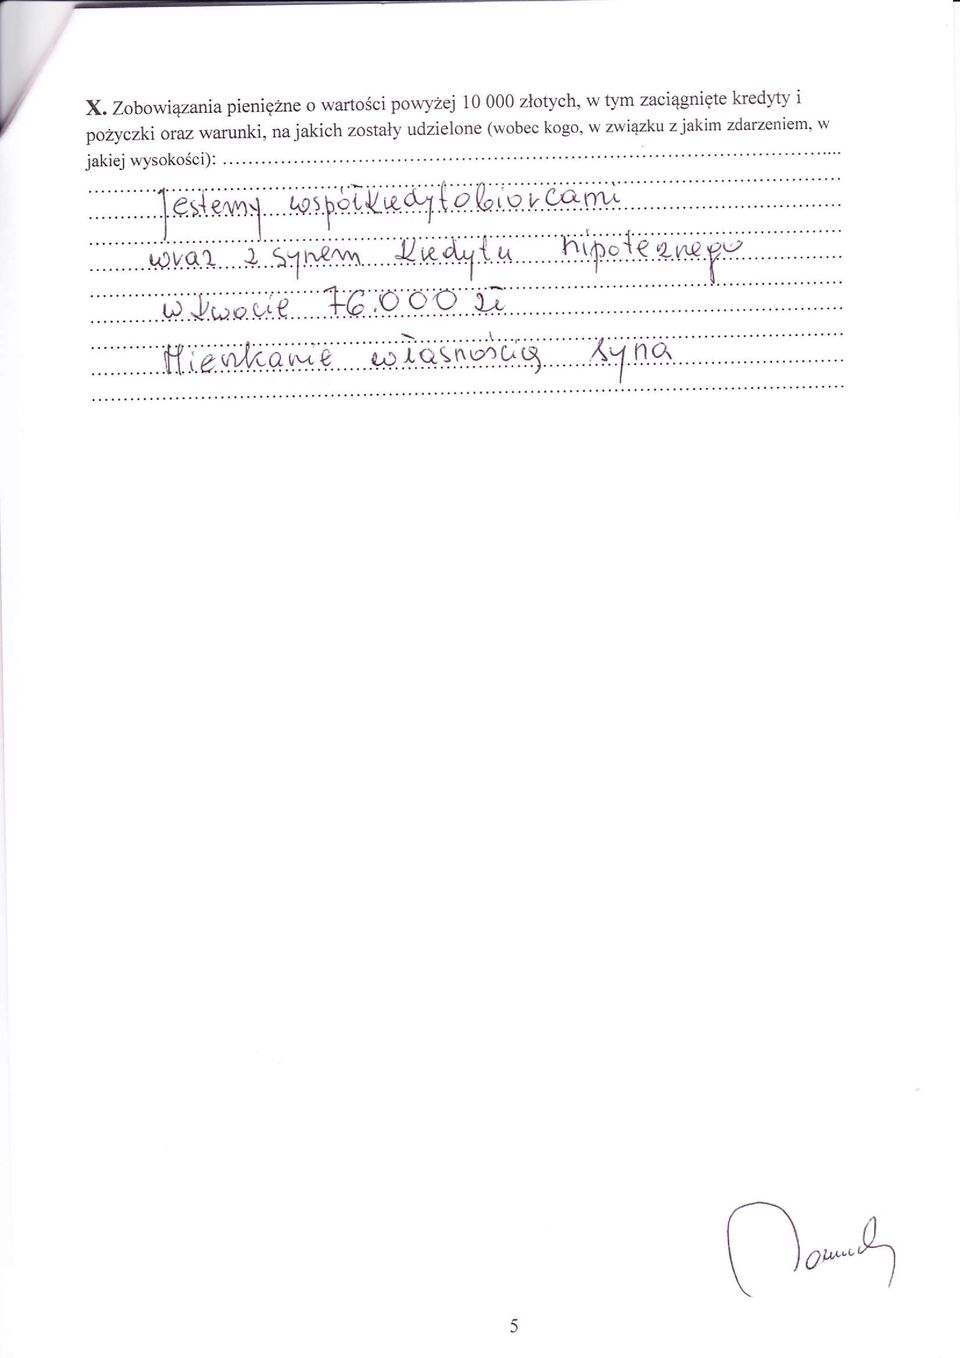 X. Zobowiązania pieniężne o wartości powyżej 10 000 złotych, w tym zaciągnięte kredyty i
pożyczki oraz warunki, na jakich zostały udzielone (wobec kogo, w związku z jakim zdarzeniem, w
jakiej wysokości): ..................................................................................................
Jesteśmy współkredytobiorcami
wraz z synem kredytu hipotecznego
w kwocie 76.000 zł
Mieszkanie własnością syna
5